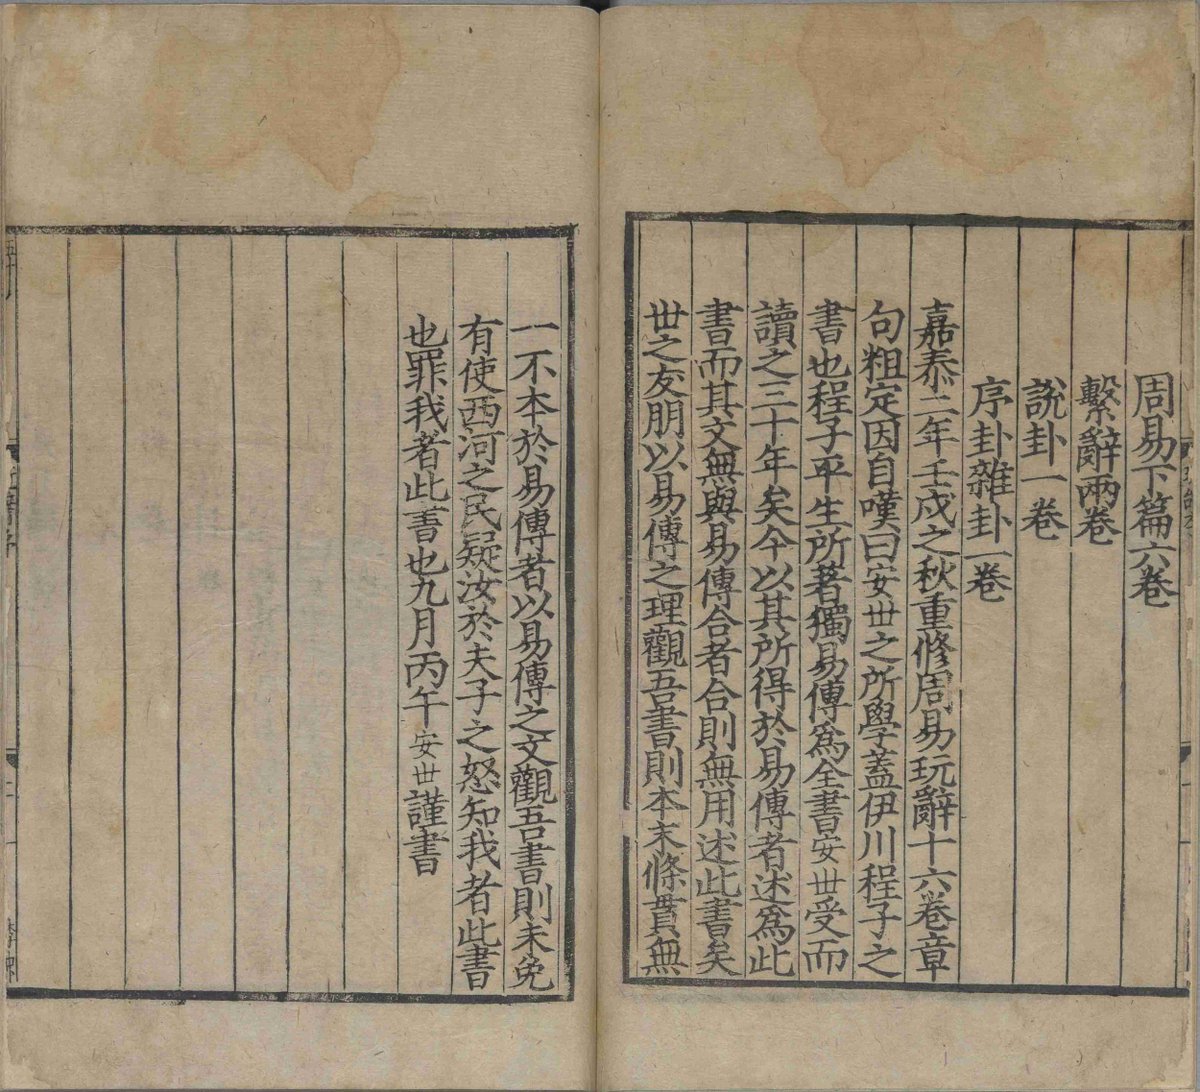 周易下篇六卷
繫辭兩卷
說卦一卷
序卦雜卦一卷
嘉泰二年壬戌之秋重修周易玩辭十六卷章
句粗定因自嘆曰安丗之所學蓋伊川程子之
書也程子平生所著獨易傳爲全書安丗受而
讀之三十年矣今以其所得於易傳者述爲此
書而其文無與易傳合者合則無用述此書矣
丗之友朋以易傳之理觀吾書則本末條貫無
一不本於易傳者以易傳之文觀吾書則未免
有使西河之民疑汝於夫子之怒知我者此書
也罪我者此書也九月丙午安丗謹書